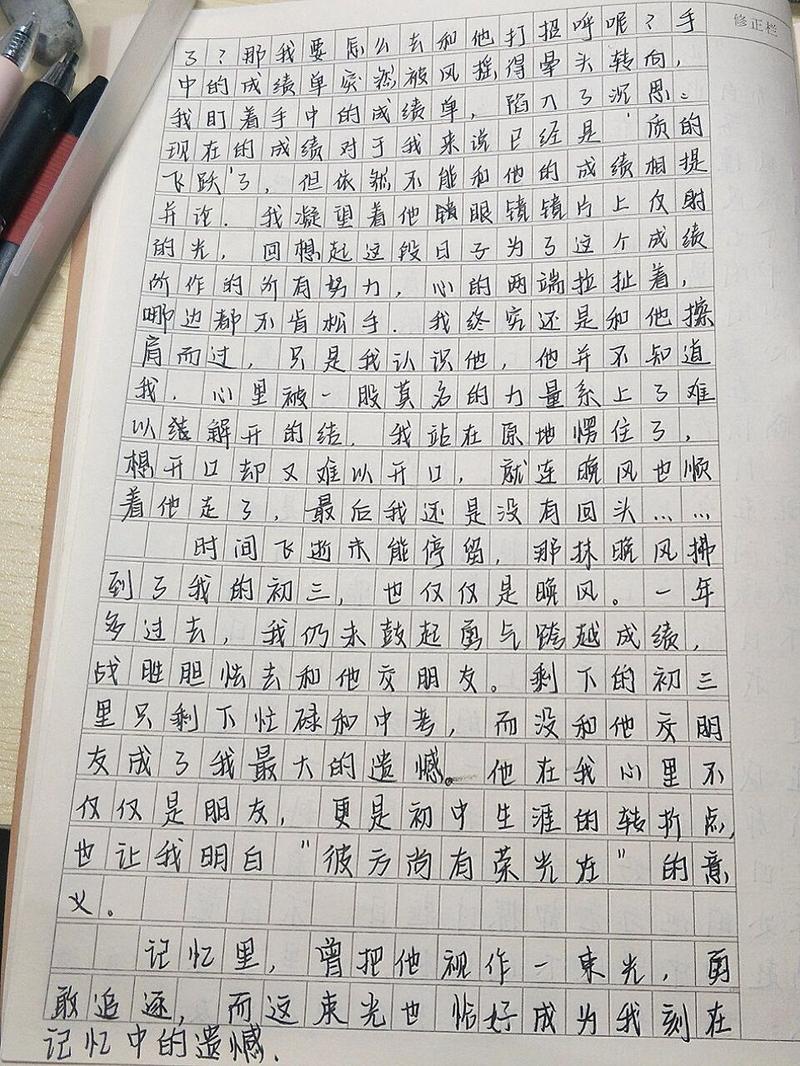 修正栏
了？那我要怎么去和他打招呼呢？手
中的成绩单突然被风摇得晕头转向，
我盯着手中的成绩单，陷入了沉思。
现在的成绩对于我来说已经是‘质的
飞跃’了，但依然不能和他的成绩相提
并论．我凝望着他眼镜镜片上反射
的光，回想起这段日子为了这个成绩
所作的所有努力，心的两端拉扯着，
哪边都不肯松手．我终究还是和他擦
肩而过，只是我认识他，他并不知道
我．心里被一股莫名的力量系上了难
以解开的结．我站在原地愣住了，
想开口却又难以开口，就连晚风也顺
着他走了，最后我还是没有回头……
时间飞逝未能停留，那抹晚风拂
到了我的初三，也仅仅是晚风。一年
多过去，我仍未鼓起勇气跨越成绩，
战胜胆怯去和他交朋友。剩下的初三
里只剩下忙碌和中考，而没和他交朋
友成了我最大的遗憾。他在我心里不
仅仅是朋友，更是初中生涯的转折点，
也让我明白“彼方尚有荣光在”的意
义。
记忆里，曾把他视作一束光，勇
敢追逐，而这束光也恰好成为我刻在
记忆中的遗憾．